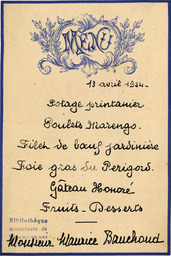 MENU
13 avril 1924.
Potage printanier
Poulets Marengo.
Filet de bœuf jardinière
Foie gras du Perigord.
Gâteau Honoré
Fruits - Desserts
Bibliothèque
municipale de
Monsieur Maurice Bauchond